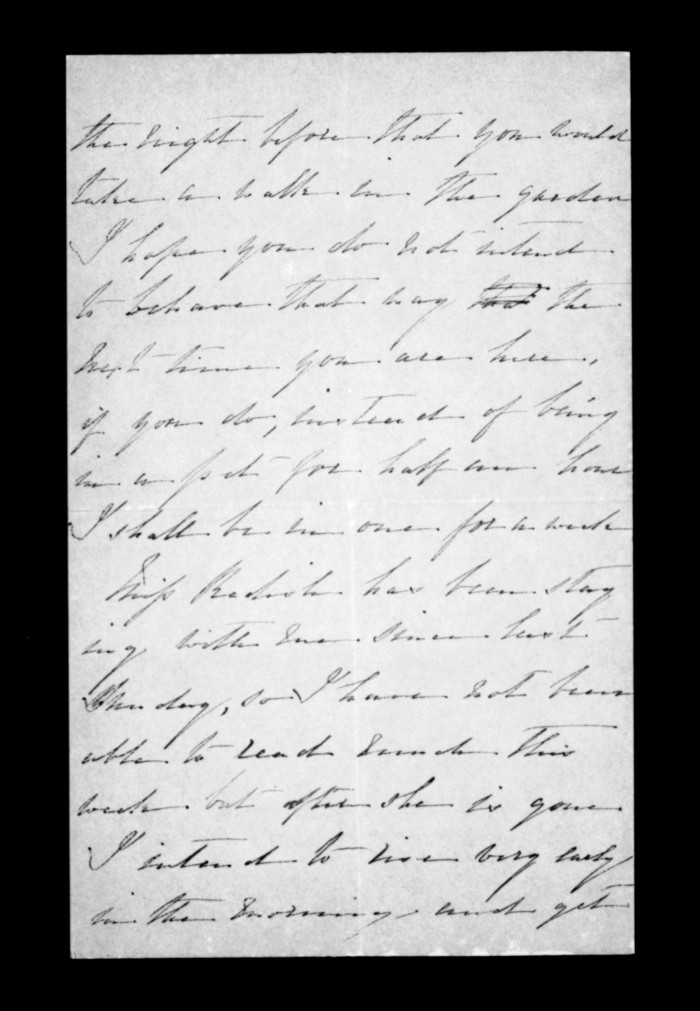 the night before that you would
take a walk in the garden
I hope you do not intend
to behave that way the
next time you are here,
if you do, instead of being
in a pet for half an hour
I shall be in one for a week
Miss Radish has been stay
ing with me since last
Sunday, so I have not been
able to read much this
week but after she is gone
I intend to rise very early
in the morning, and get